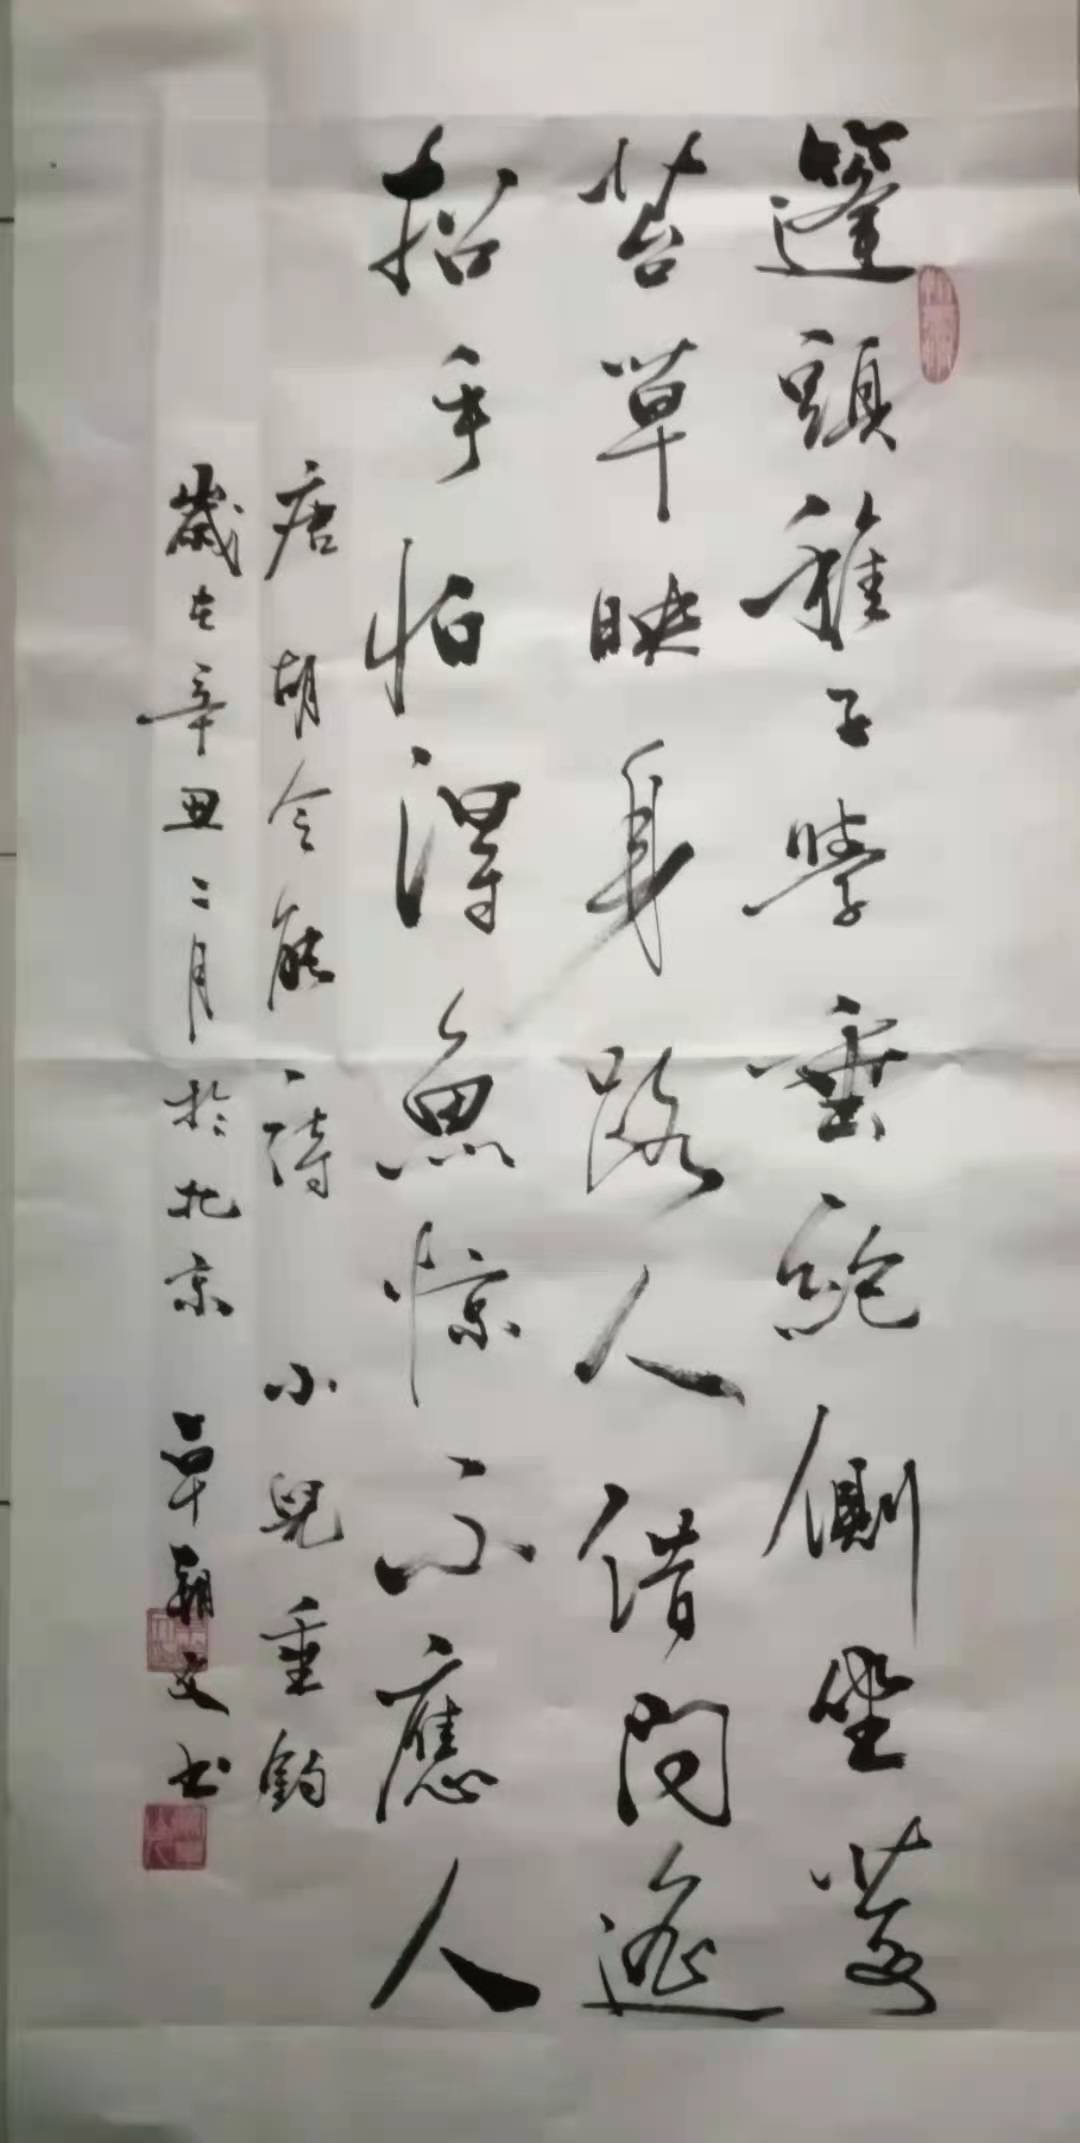 篷頭稚子學垂綸側坐莓
苔草映身路人借问遥
招手怕得魚惊不應人
唐 胡令能 詩 小兒垂釣
歲在辛丑二月於北京 覃朝文书